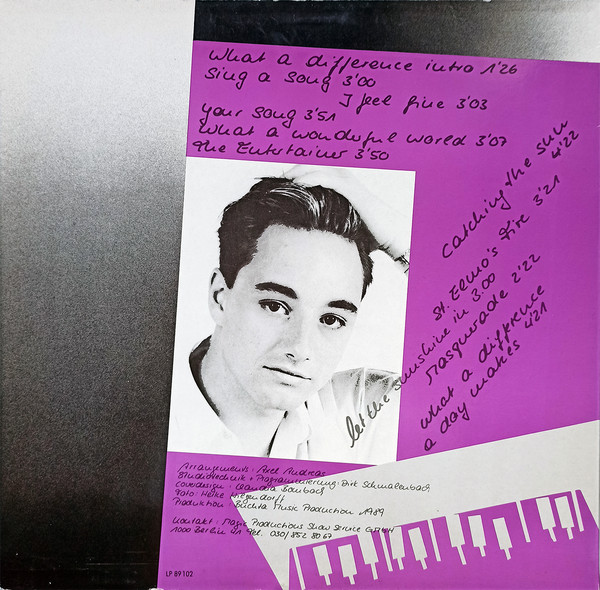 What a difference intro 1'26
Sing a song 3'00
I feel fine 3'03
your song 3'51
What a wonderful world 3'07
The Entertainer 3'50
Catching the sun
4'22
St. Elmo's Fire 3'21
let the sunshine in 3.00
Masquerade 2'22
what a difference
a day makes 4'21
Arrangements: Axel Andreas
Studiotechnik + Programmierung: Dirk Schmalenbach
Coverdesign: Claudia Bombach
Foto: Heike
Produktion: Music Production 1989
Kontakt: Magic Productions Show Service GmbH
1000 Berlin 41 Tel. 030/852 80 67
LP 89102